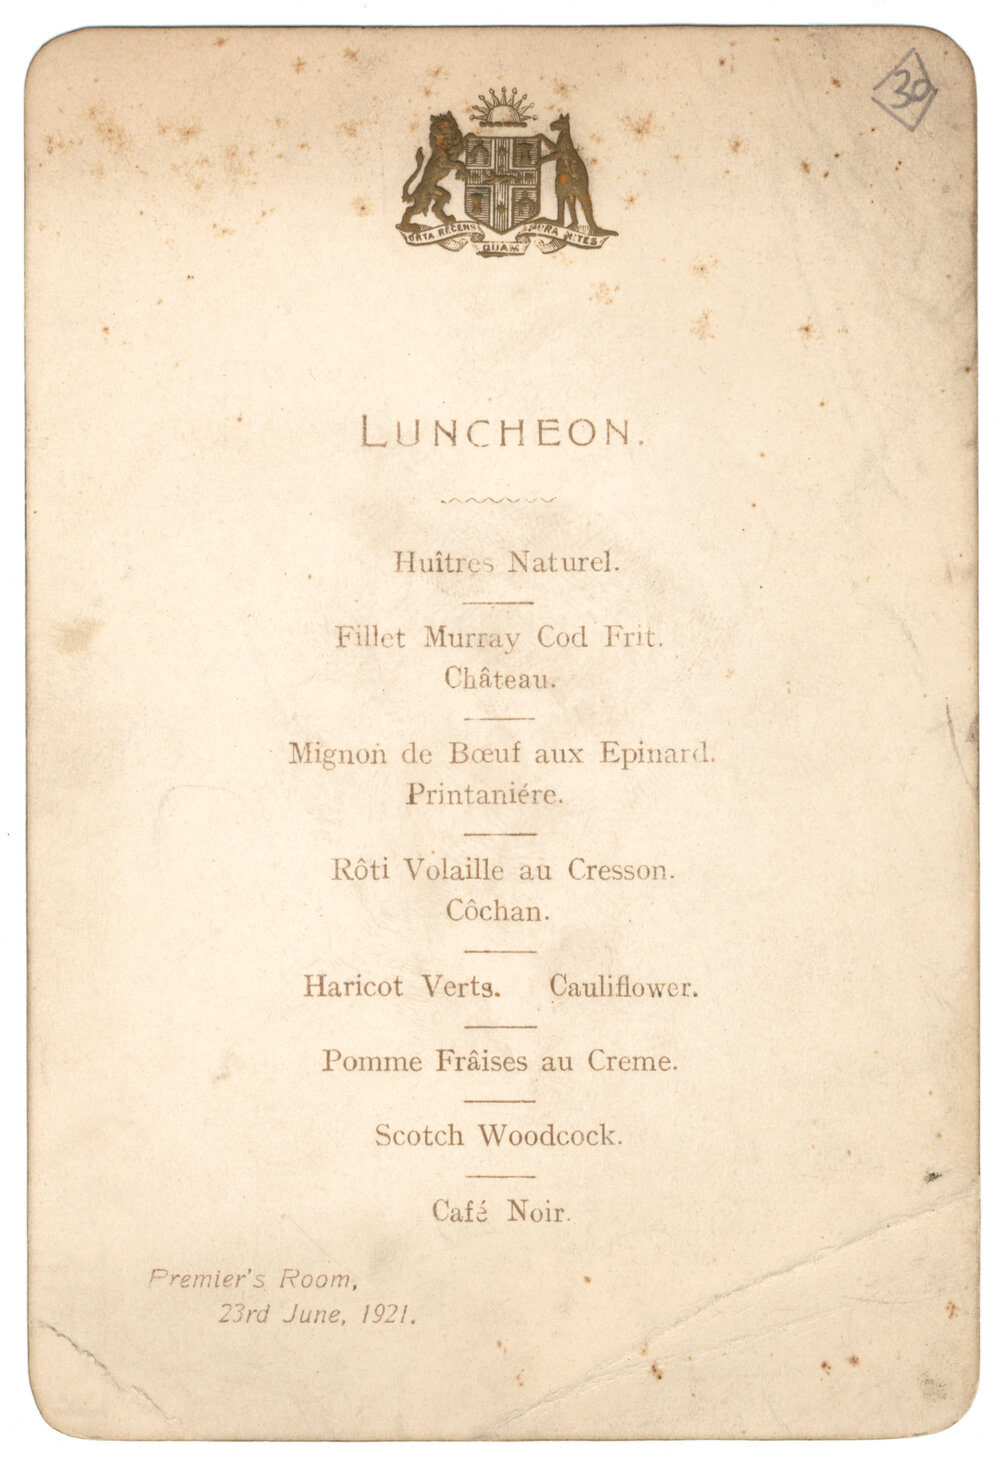 30
ORTA RECENS QUAM PURA NITES
LUNCHEON.
Huîtres Naturel.
Fillet Murray Cod Frit.
Château.
Mignon de Bœuf aux Epinard.
Printaniére.
Rôti Volaille au Cresson.
Côchan.
Haricot Verts. Cauliflower.
Pomme Frâises au Creme.
Scotch Woodcock.
Café Noir.
Premier's Room,
23rd June, 1921.